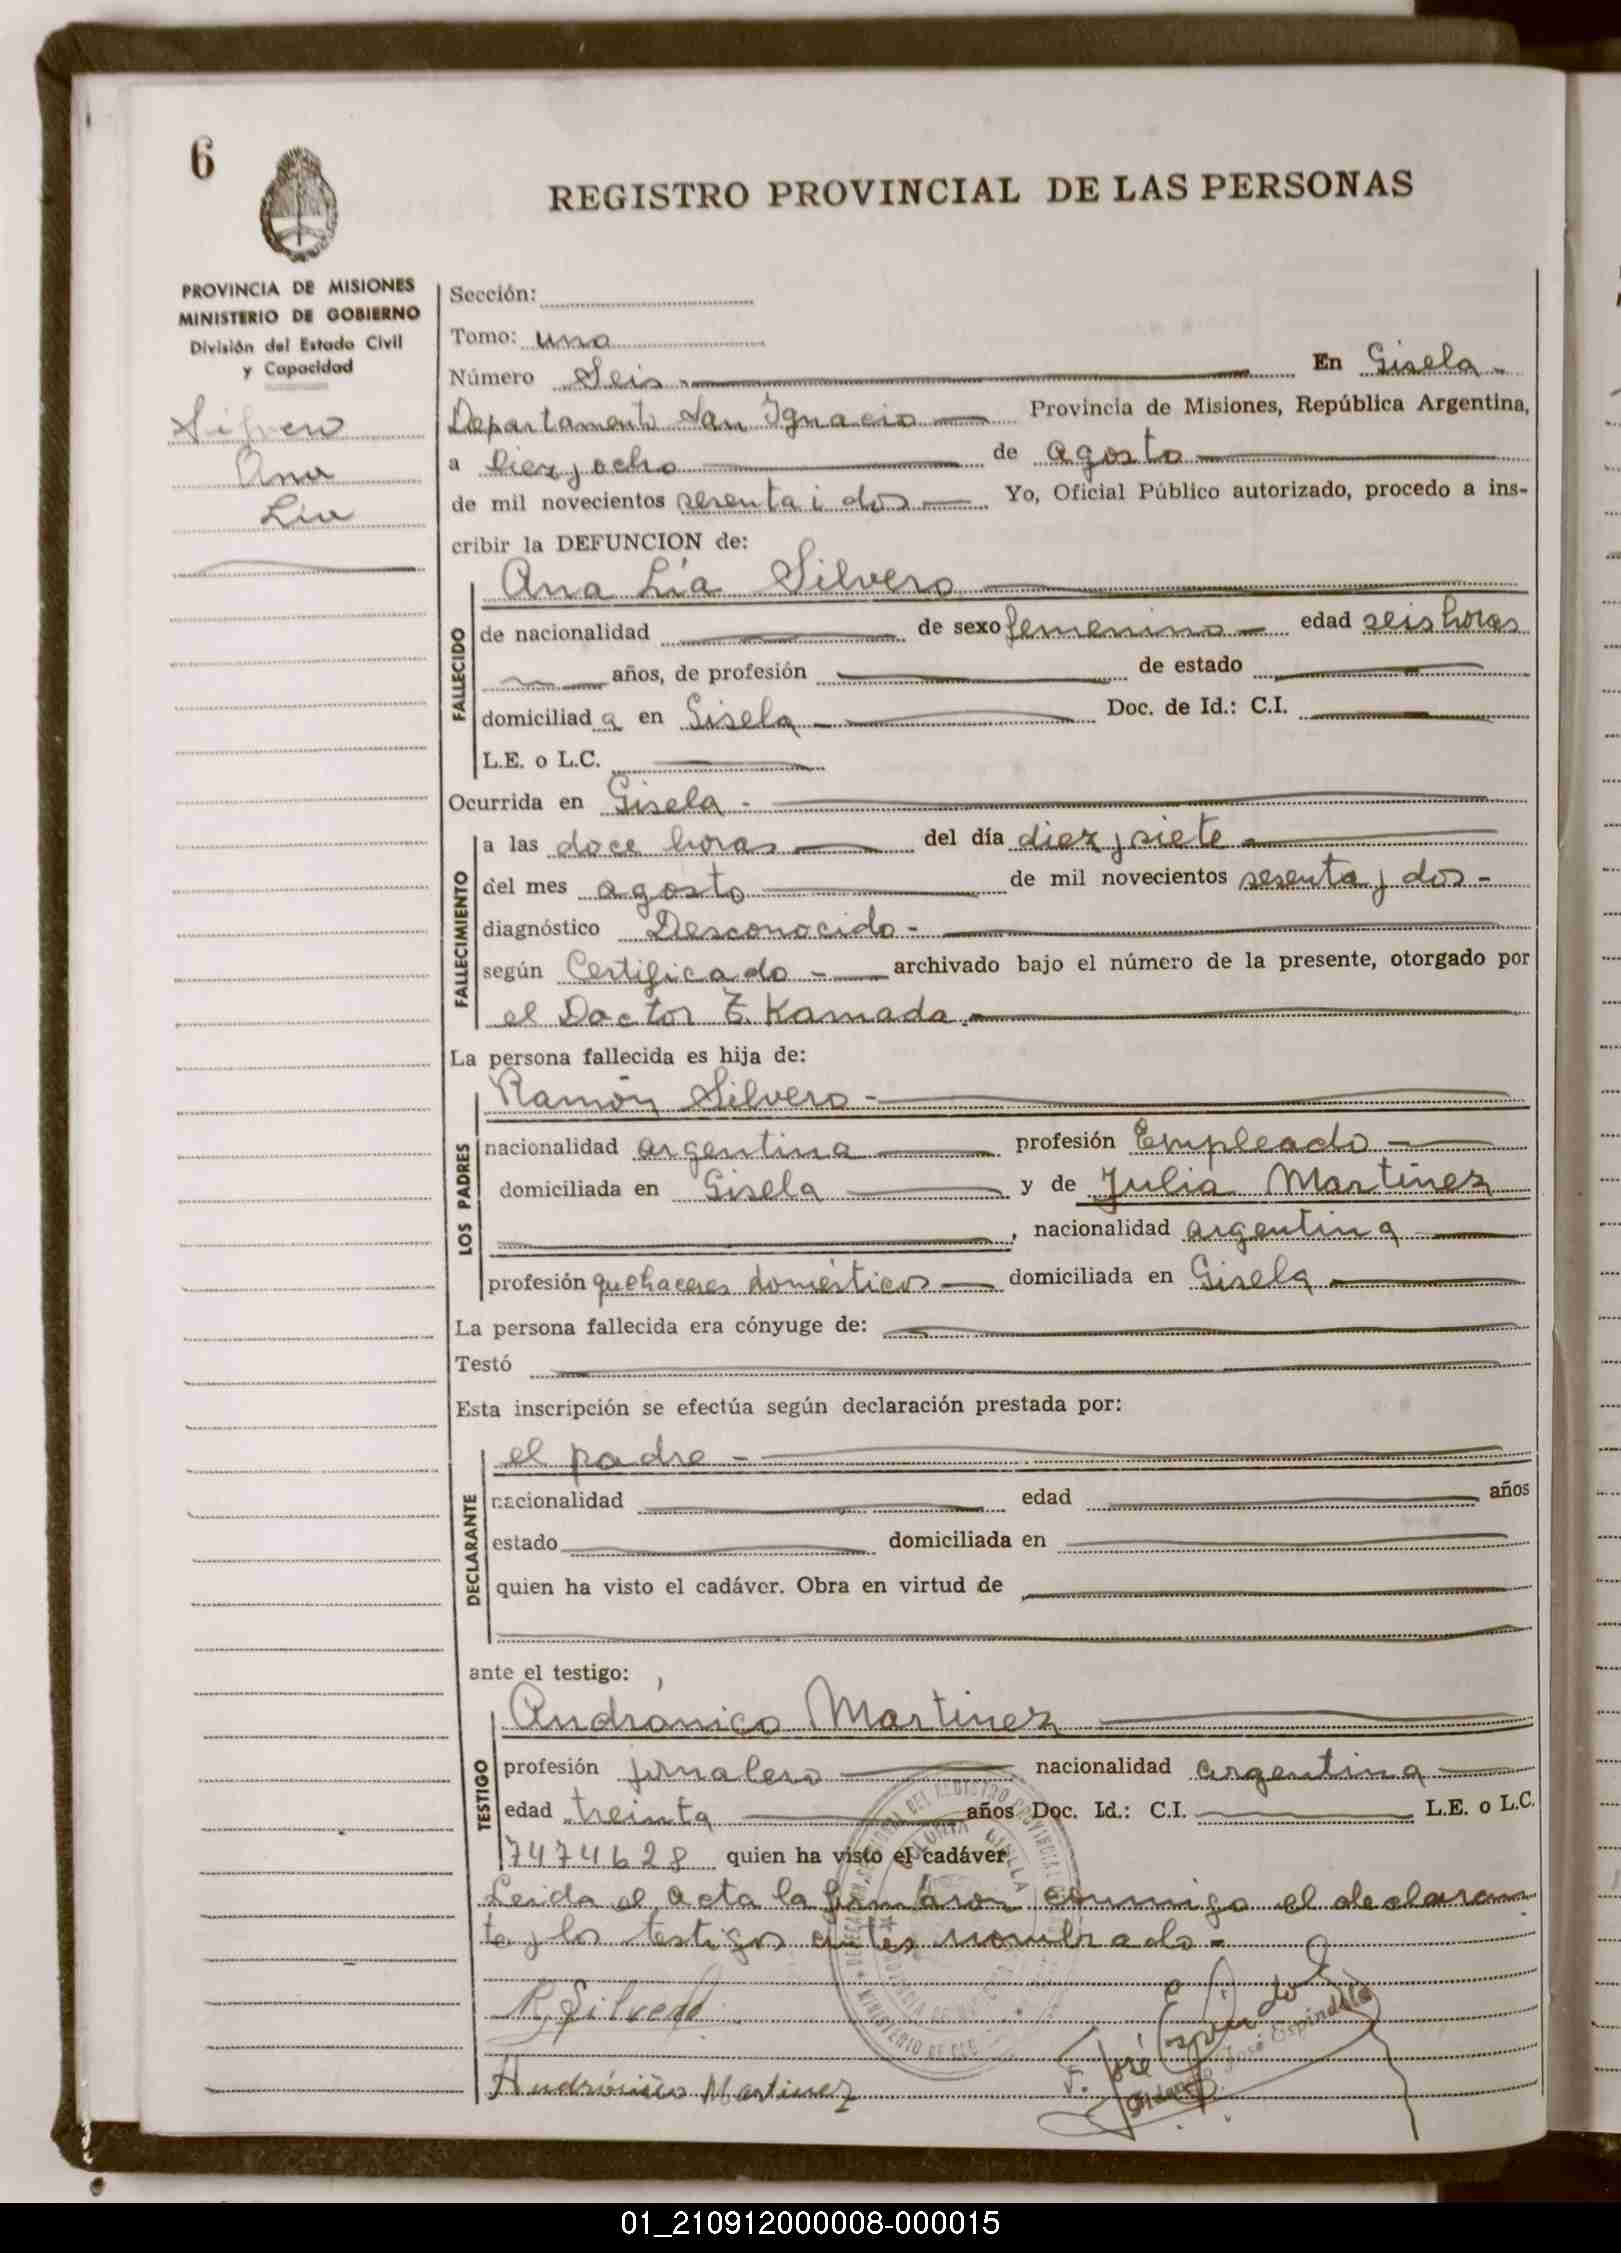 6
REGISTRO PROVINCIAL DE LAS PERSONAS
PROVINCIA DE MISIONES
MINISTERIO DE GOBIERNO
División del Estado Civil
y Capacidad
Silvero
Ana
Lia
Sección:
Tomo: uno
Número Seis. En Gisela
Departamento San Ignacio Provincia de Misiones, República Argentina,
a diez y ocho de agosto
de mil novecientos sesenta i dos Yo, Oficial Público autorizado, procedo a ins-
cribir la DEFUNCION de:
Ana Lía Silvero
FALLECIDO
de nacionalidad de sexo femenino edad seis horas
años, de profesión de estado
domiciliad a en Gisela Doc. de Id.: C.I.
L.E. o L.C.
Ocurrida en Gisela
FALLECIMIENTO
a las doce horas del día diez y siete
del mes agosto de mil novecientos sesenta y dos
diagnóstico Desconocido
según Certificado archivado bajo el número de la presente, otorgado por
el Doctor Z. Kamada
La persona fallecida es hija de:
Ramón Silvero
LOS PADRES
nacionalidad argentina profesión Empleado
domiciliada en Gisela y de Julia Martinez
, nacionalidad argentina
profesión quehaceres domésticos domiciliada en Gisela
La persona fallecida era cónyuge de:
Testó
Esta inscripción se efectúa según declaración prestada por:
el padre
DECLARANTE
nacionalidad edad años
estado domiciliada en
quien ha visto el cadáver. Obra en virtud de
ante el testigo:
Andrónico Martinez
TESTIGO
profesión jornalero nacionalidad argentina
edad treinta años Doc. Id.: C.I. L.E. o L.C.
7474628 quien ha visto el cadáver
Leida el acta la firmaron conmigo el declaran
te y los testigos antes nombrado
R. Silvero
F. José Espindola
José Espindola
Andrónico Martinez
01_210912000008-000015